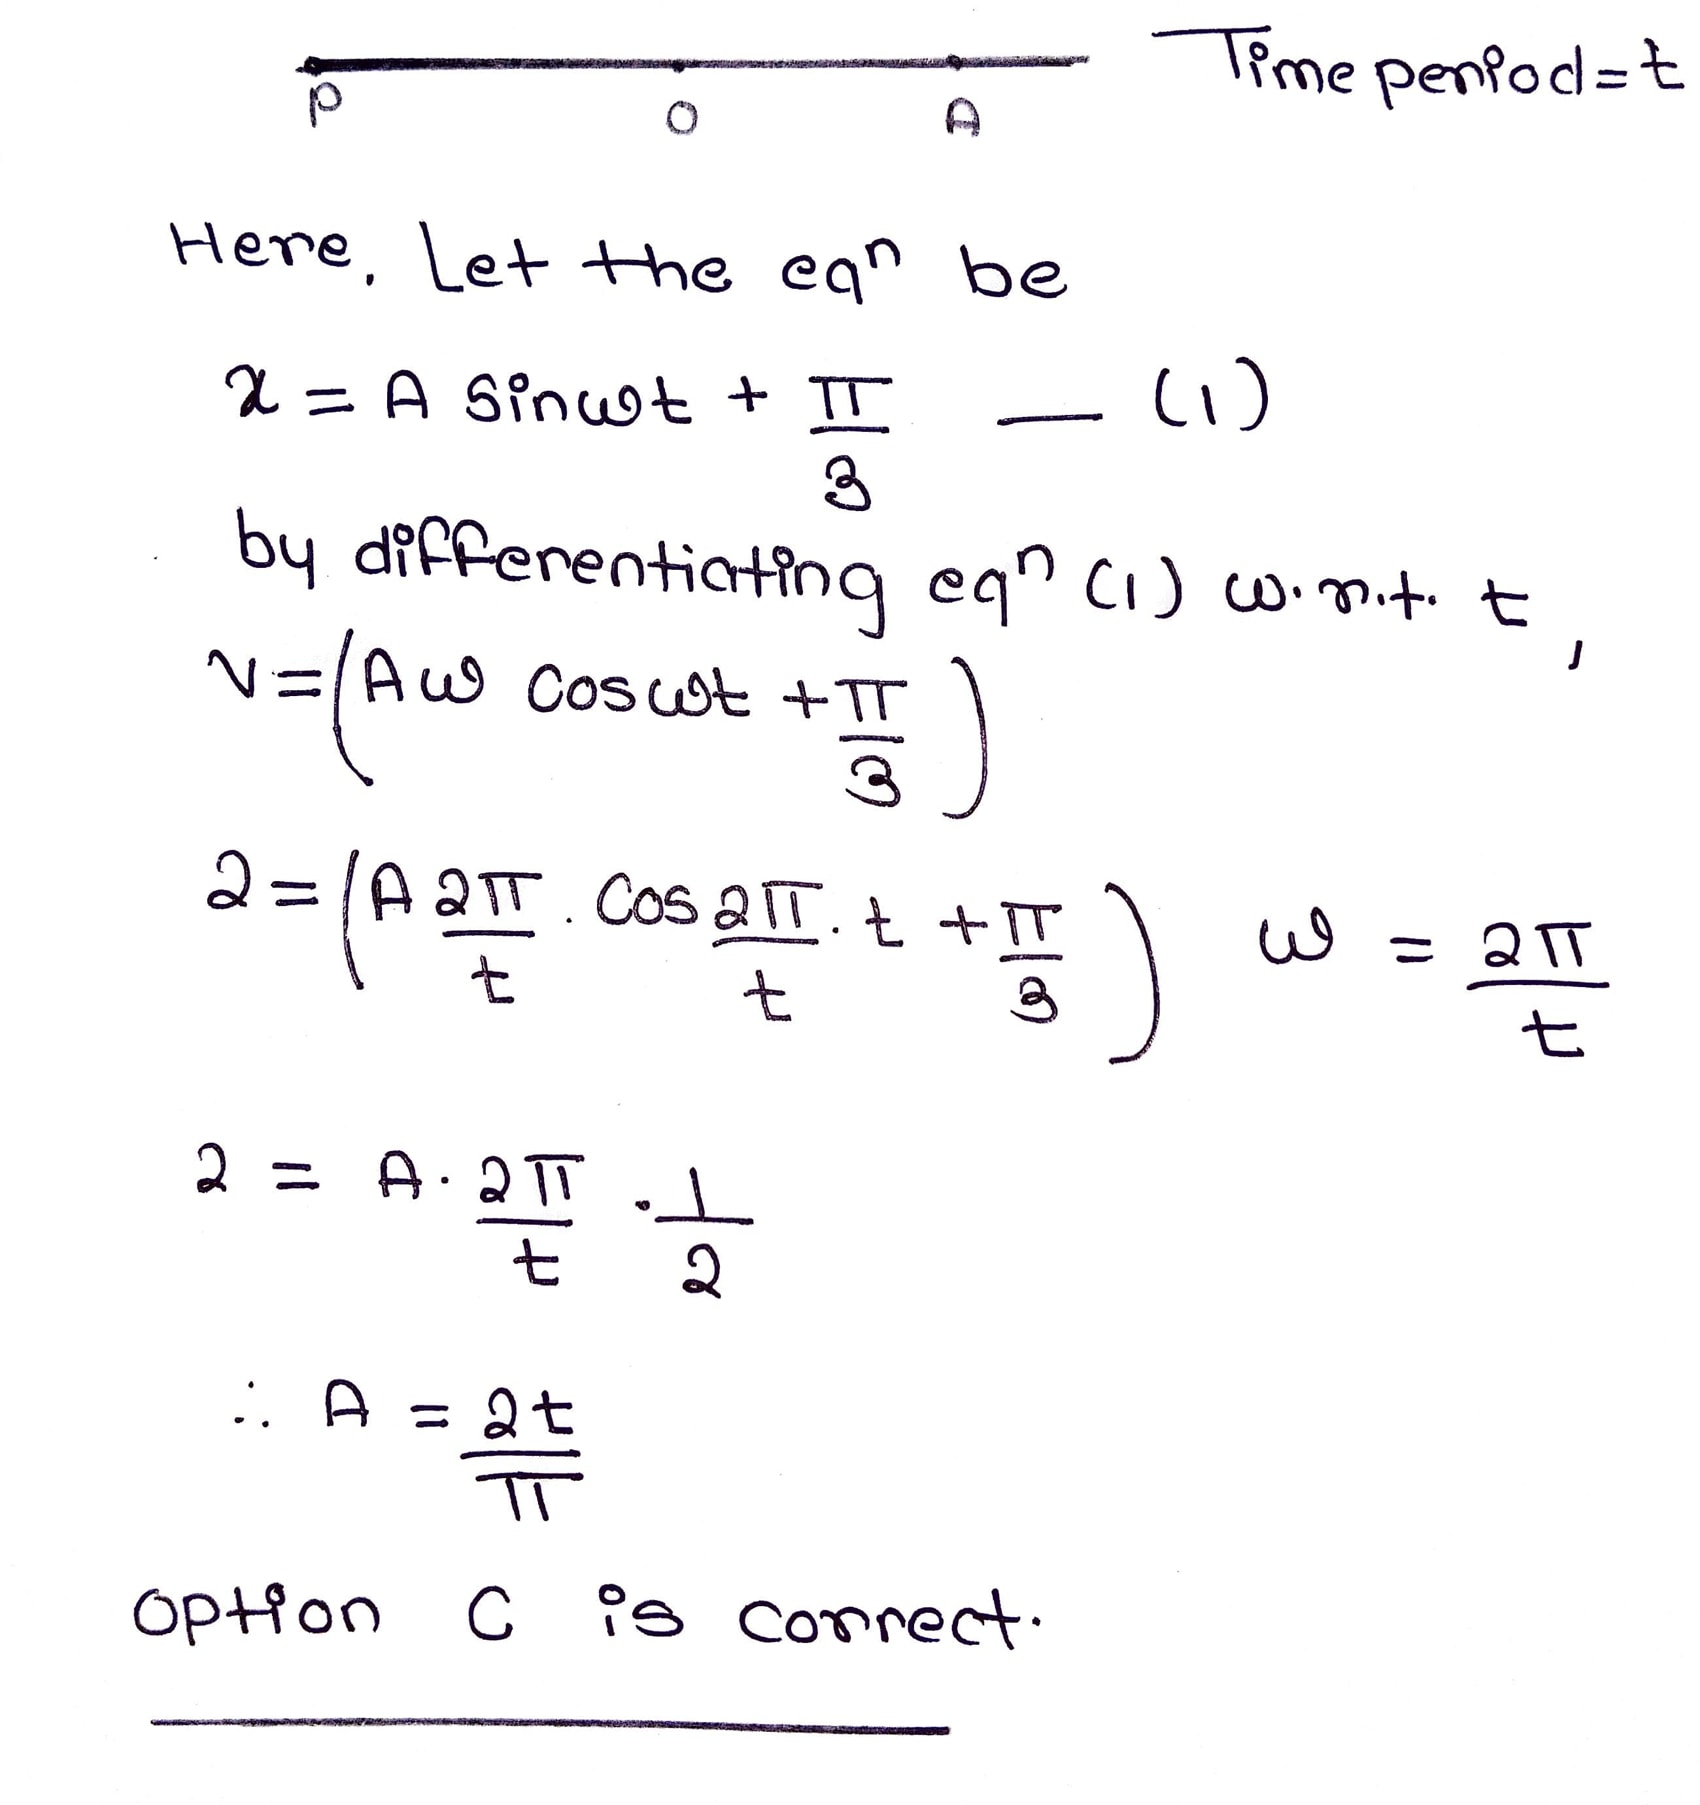 P O A Time period = t
Here, Let the eqⁿ be
x = A sinωt + π/3 — (1)
by differentiating eqⁿ (1) w.r.t. t,
v = (Aω cosωt + π/3)
2 = (A 2π/t . cos 2π/t . t + π/3) ω = 2π/t
2 = A · 2π/t · 1/2
∴ A = 2t/π
option C is correct.